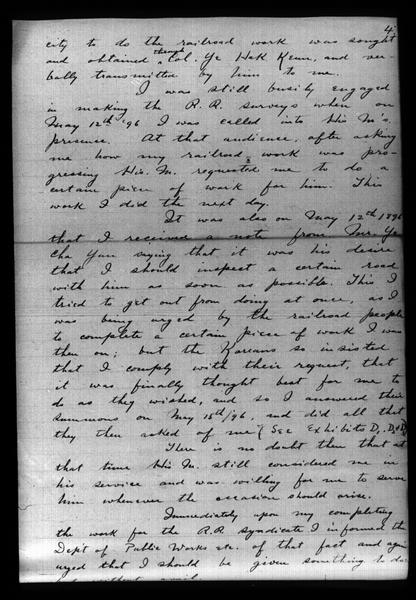 4.
city to do the railroad work was sought
through
and obtained Col. Ye Hak Keun, and ver-
bally transmitted by him to me.
I was still busily engaged
in making the R.R. surveys when on
May 12th '96 I was called into His M's.
presence. At that audience, after asking
me how my railroad work was pro-
gressing His M. requested me to do a
certain piece of work for him. This
work I did the next day.
It was also on May 12th 1896
that I received a note from Mr. Ye
Cha Yun saying that it was his desire
that I should inspect a certain road
with him as soon as possible. This I
tried to get out from doing at once, as I
was being urged by the railroad people
to complete a certain piece of work I was
then on; but the Koreans so insisted
that I comply with their request, that
it was finally thought best for me to
do as they wished, and so I answered their
summons on May 15th/96, and did all that
they then asked of me (See Exhibits D,
There is no doubt then that at
that time His M. still considered me in
his service and was willing for me to serve
him whenever the occasion should arise.
Immediately upon my completing
the work for the R.R. Syndicate I informed the
Dep't of Public Works etc. of that fact and again
urged that I should be given something to do